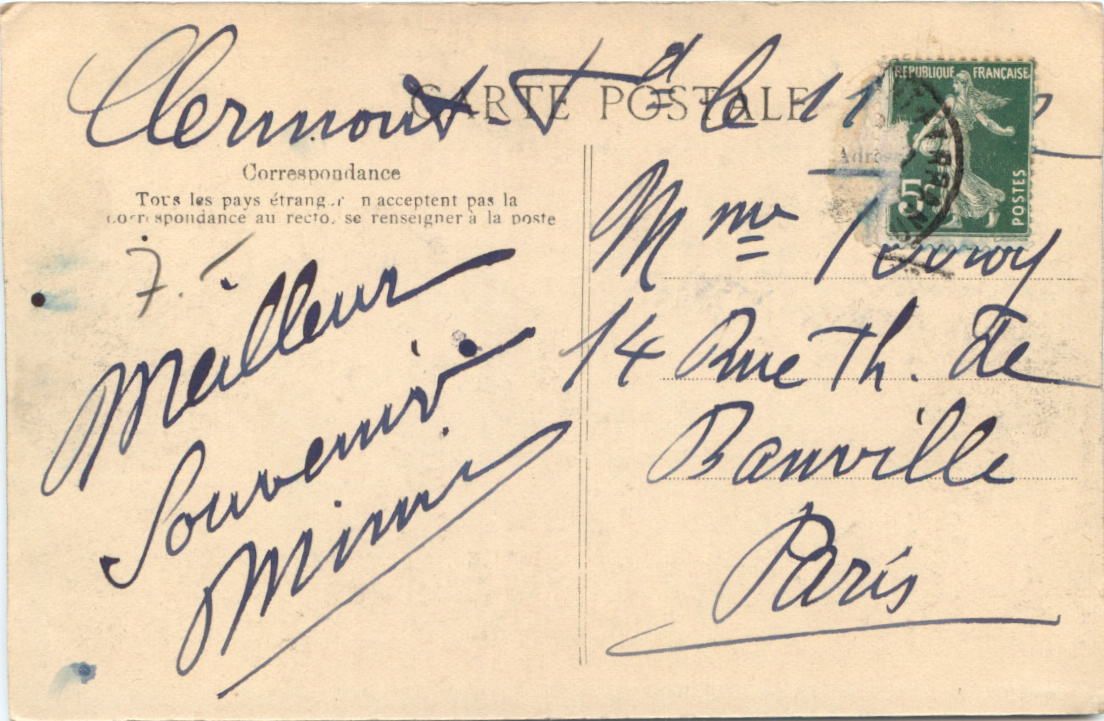 Clermont-Fd le 11
CARTE POSTALE
Correspondance
Tous les pays étrang.r n acceptent pas la
correspondance au recto, se renseigner à la poste
7.
Meilleur
Souvenir
Mimi
RÉPUBLIQUE FRANÇAISE
5c
POSTES
Mme
14 Rue Th. De
Banville
Paris